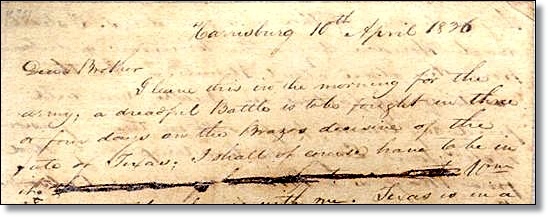 Harrisburg 10th April 1836
Dear Brother
I leave this in the morning for the
army, a dreadful Battle is to be fought in three
or four days on the Brazos decisive of the
fate of Texas; I shall of course have to be in
the
with me. Texas is in a